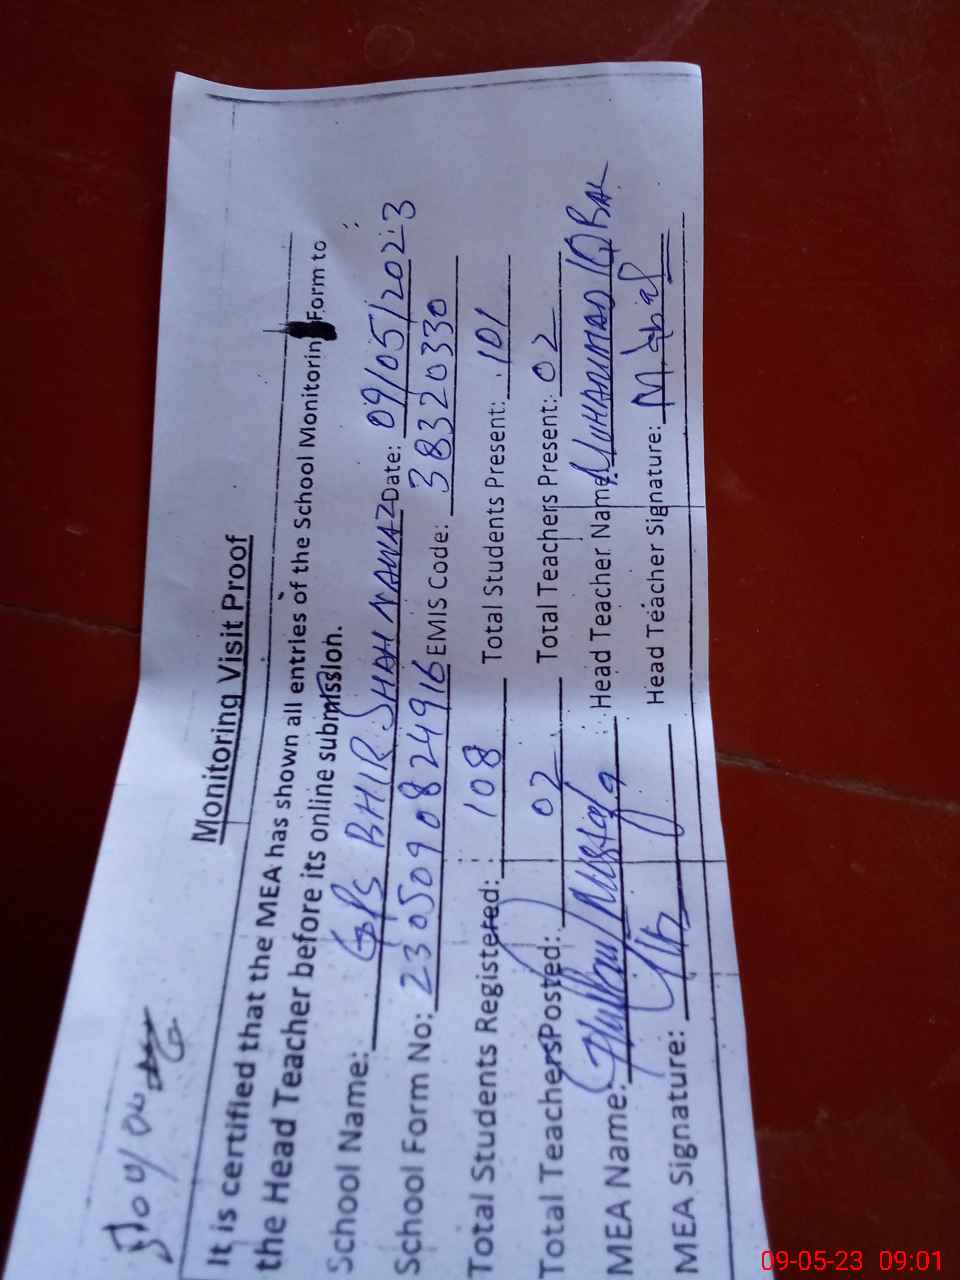 Monitoring Visit Proof
It is certified that the MEA has shown all entries of the School Monitoring Form to
the Head Teacher before its online submission.
School Name: GPS BHIR SHAH NAWAZ Date: 09/05/2023
School Form No: 230509 0824916 EMIS Code: 38320330
Total Students Registered: 108 Total Students Present: 101
Total TeachersPosted: 02 Total Teachers Present: 02
MEA Name: Mustafa Head Teacher Name: MUHAMMAD IQBAL
MEA Signature: Head Teacher Signature: M. Iqbal
09-05-23 09:01